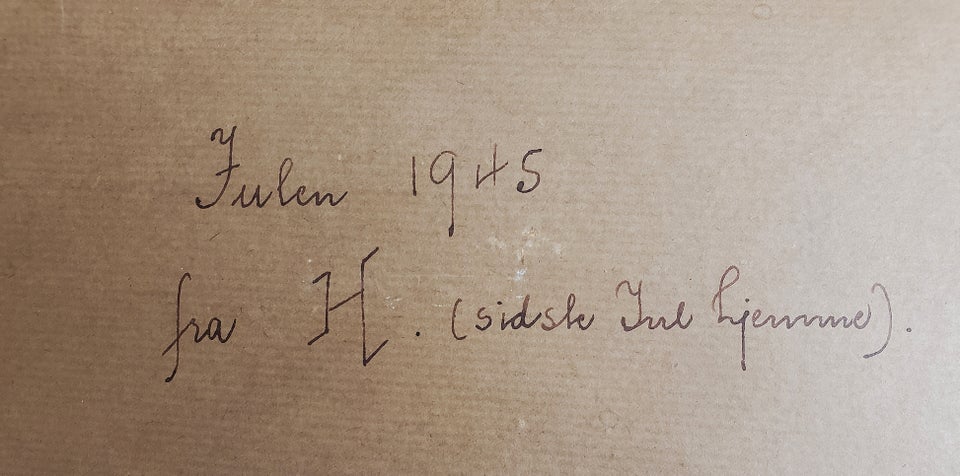 Julen 1945
fra H. (sidste Jul hjemme).